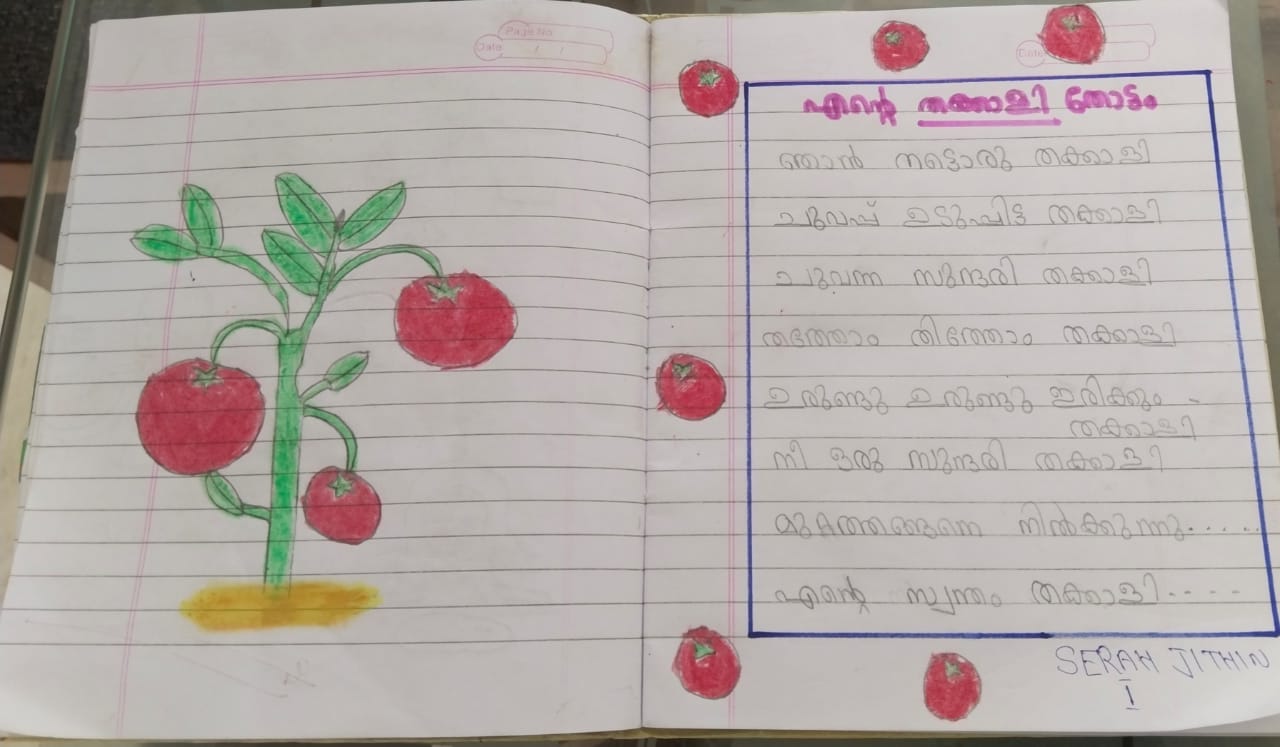 Page No.
Date / /
Date
എന്റെ തക്കാളി തോട്ടം
ഞാൻ നട്ടൊരു തക്കാളി
ചുവപ്പ് ഉടുപ്പിട്ട തക്കാളി
ചുവന്ന സുന്ദരി തക്കാളി
തത്തോം തിത്തോം തക്കാളി
ഉരുണ്ടു ഉരുണ്ടു ഇരിക്കും -
തക്കാളി
നീ ഒരു സുന്ദരി തക്കാളി
മുറ്റത്തങ്ങനെ നിൽക്കുന്നു.....
എന്റെ സ്വന്തം തക്കാളി....
SERAH JITHIN
I